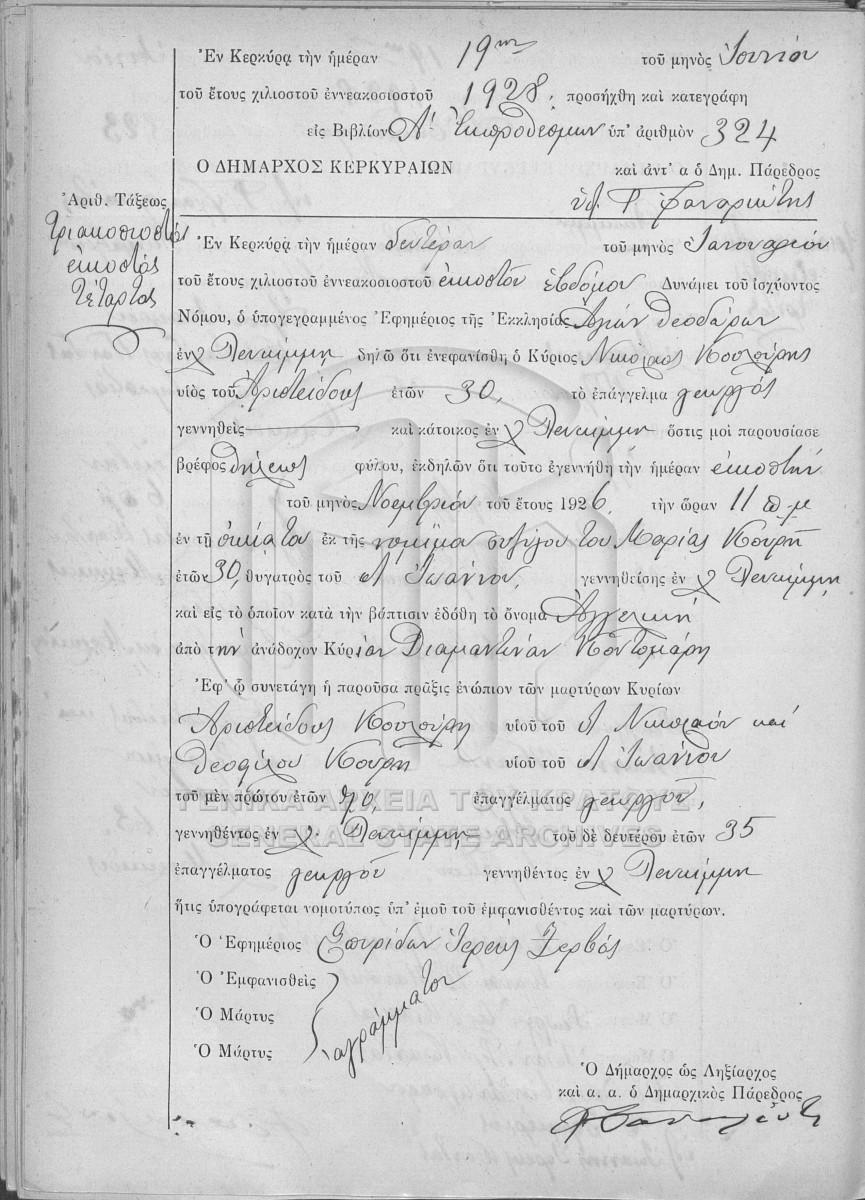 Ἐν Κερκύρᾳ τὴν ἡμέραν 19ην τοῦ μηνὸς Ἰουνίου
τοῦ ἔτους χιλιοστοῦ ἐννεακοσιοστοῦ 1928, προσήχθη καὶ κατεγράφη
εἰς Βιβλίον Α' Ἐκπροθέσμων ὑπ' ἀριθμὸν 324
Ο ΔΗΜΑΡΧΟΣ ΚΕΡΚΥΡΑΙΩΝ καὶ ἀντ' α ὁ Δημ. Πάρεδρος
Ἀριθ. Τάξεως
τριακοσιοστός
εἰκοστός
τέταρτος
Ἐν Κερκύρᾳ τὴν ἡμέραν δευτέραν τοῦ μηνὸς Ἰανουαρίου
τοῦ ἔτους χιλιοστοῦ ἐννεακοσιοστοῦ εἰκοστοῦ ἑβδόμου Δυνάμει τοῦ ἰσχύοντος
Νόμου, ὁ ὑπογεγραμμένος Ἐφημέριος τῆς Ἐκκλησίας Ἁγίων Θεοδώρων
ἐν χ Λευκίμμη δηλῶ ὅτι ἐνεφανίσθη ὁ Κύριος Νικόλαος Κουλούρης
υἱὸς τοῦ Ἀριστείδους ἐτῶν 30, τὸ ἐπάγγελμα γεωργός
γεννηθεὶς καὶ κάτοικος ἐν χ Λευκίμμη ὅστις μοὶ παρουσίασε
βρέφος θήλεος φύλου, ἐκδηλῶν ὅτι τοῦτο ἐγεννήθη τὴν ἡμέραν εἰκοστήν
τοῦ μηνὸς Νοεμβρίου τοῦ ἔτους 1926, τὴν ὥραν 11 π.μ
ἐν τῇ οἰκίᾳ του ἐκ τῆς νομίμου συζύγου του Μαρίας Κουρῆ
ἐτῶν 30, θυγατρὸς τοῦ Ἰωάννου, γεννηθείσης ἐν χ Λευκίμμη
καὶ εἰς τὸ ὁποῖον κατὰ τὴν βάπτισιν ἐδόθη τὸ ὄνομα Ἀγγελική
ἀπὸ τὴν ἀνάδοχον Κυρίαν Διαμαντίναν Κοντομάρη
Ἐφ' ᾧ συνετάγη ἡ παροῦσα πρᾶξις ἐνώπιον τῶν μαρτύρων Κυρίων
Ἀριστείδους Κουλούρη υἱοῦ τοῦ Νικολάου καί
Θεοφίλου Κουρῆ υἱοῦ τοῦ Ἰωάννου
τοῦ μὲν πρώτου ἐτῶν 70, ἐπαγγέλματος γεωργοῦ,
ΓΕΝΙΚΑ ΑΡΧΕΙΑ ΤΟΥ ΚΡΑΤΟΥΣ
γεννηθέντος ἐν χ. Λευκίμμη, τοῦ δὲ δευτέρου ἐτῶν 35
GENERAL STATE ARCHIVES
ἐπαγγέλματος γεωργοῦ γεννηθέντος ἐν χ Λευκίμμη
ἥτις ὑπογράφεται νομοτύπως ὑπ' ἐμοῦ τοῦ ἐμφανισθέντος καὶ τῶν μαρτύρων.
Ὁ Ἐφημέριος Σπυρίδων Ἱερεὺς Ζερβός
Ὁ Ἐμφανισθεὶς
Ὁ Μάρτυς ἀγράμματοι
Ὁ Μάρτυς
Ὁ Δήμαρχος ὡς Ληξίαρχος
καὶ α. α. ὁ Δημαρχικὸς Πάρεδρος